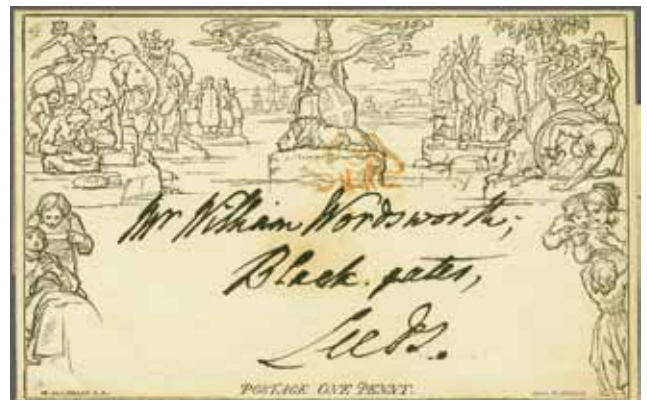 Mr William Wordsworth;
Black-gates,
Leeds.
POSTAGE ONE PENNY.